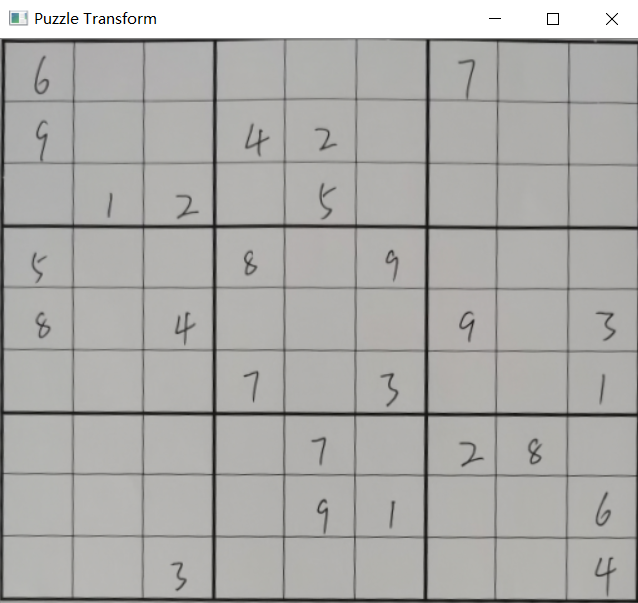 Puzzle Transform
6 7
9 4 2
1 2 5
5 8 9
8 4 9 3
7 3 1
7 2 8
9 1 6
3 4